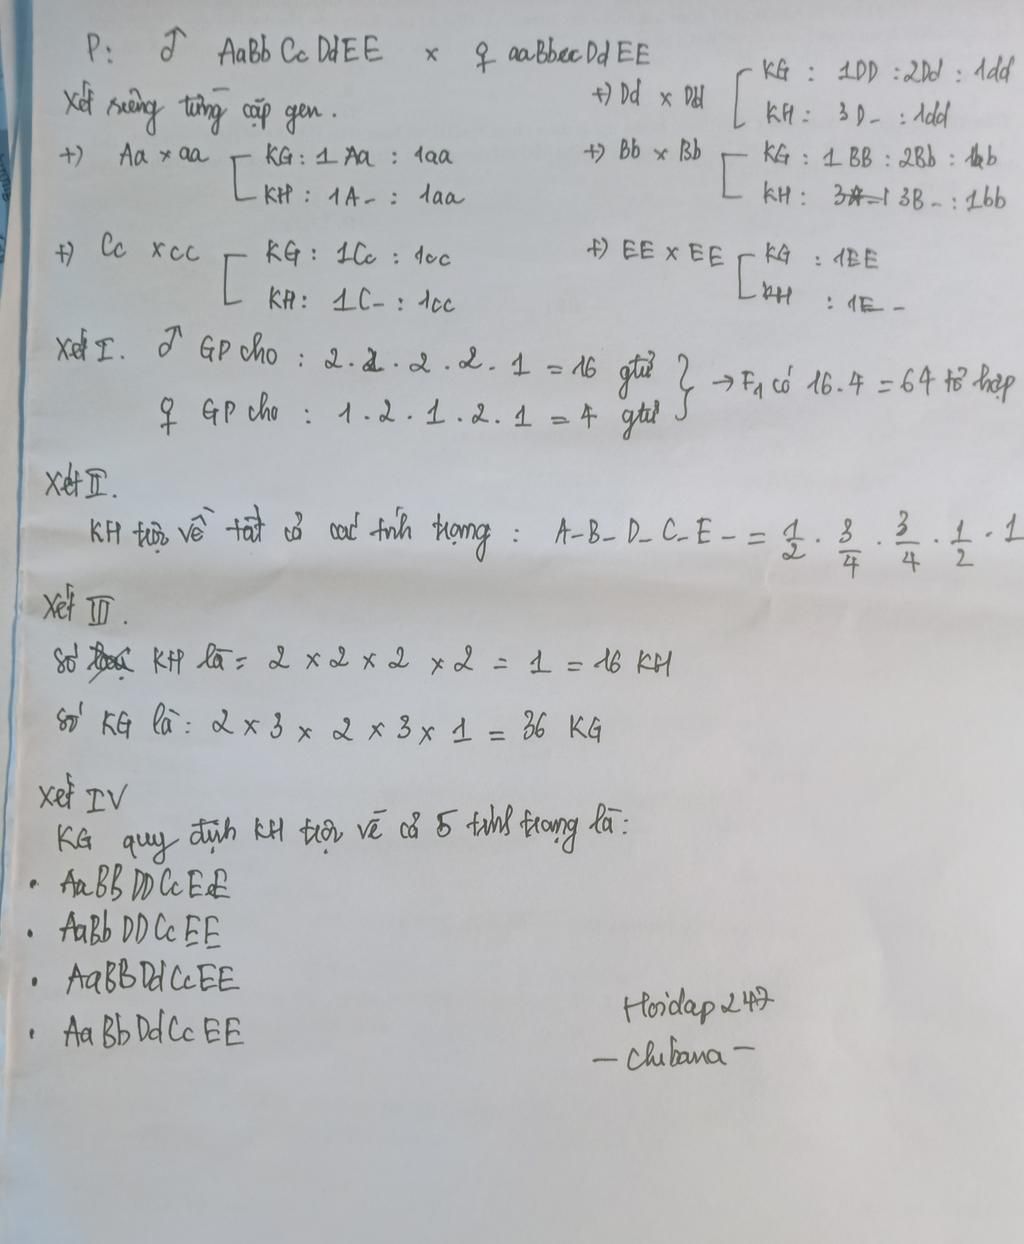 P: ♂ AaBb Cc DdEE × ♀ aaBbccDdEE
Xét riêng từng cặp gen.
+) Dd × Dd
KG : 1DD : 2Dd : 1dd
KH : 3D- : 1dd
+) Aa × aa
KG : 1 Aa : 1aa
KH : 1A- : 1aa
+) Bb × Bb
KG : 1 BB : 2Bb : 1bb
KH : 3B- : 1bb
+) Cc × cc
KG : 1Cc : 1cc
KH : 1C- : 1cc
+) EE × EE
KG : 1EE
KH : 1E-
Xét I. ♂ GP cho : 2.2.2.2.1 = 16 gtử
♀ GP cho : 1.2.1.2.1 = 4 gtử
→ F1 có 16.4 = 64 tổ hợp
Xét II.
KH trội về tất cả các tính trạng : A-B-D-C-E- = 1/2 . 3/4 . 3/4 . 1/2 . 1
Xét III.
Số KH là = 2 × 2 × 2 × 2 = 1 = 16 KH
Số KG là : 2 × 3 × 2 × 3 × 1 = 36 KG
Xét IV
KG quy định KH trội về cả 5 tính trạng là :
• AaBBDDCcEE
• AaBbDDCcEE
• AaBBDdCcEE
• AaBbDdCcEE
Hoidap247
- Chibana -